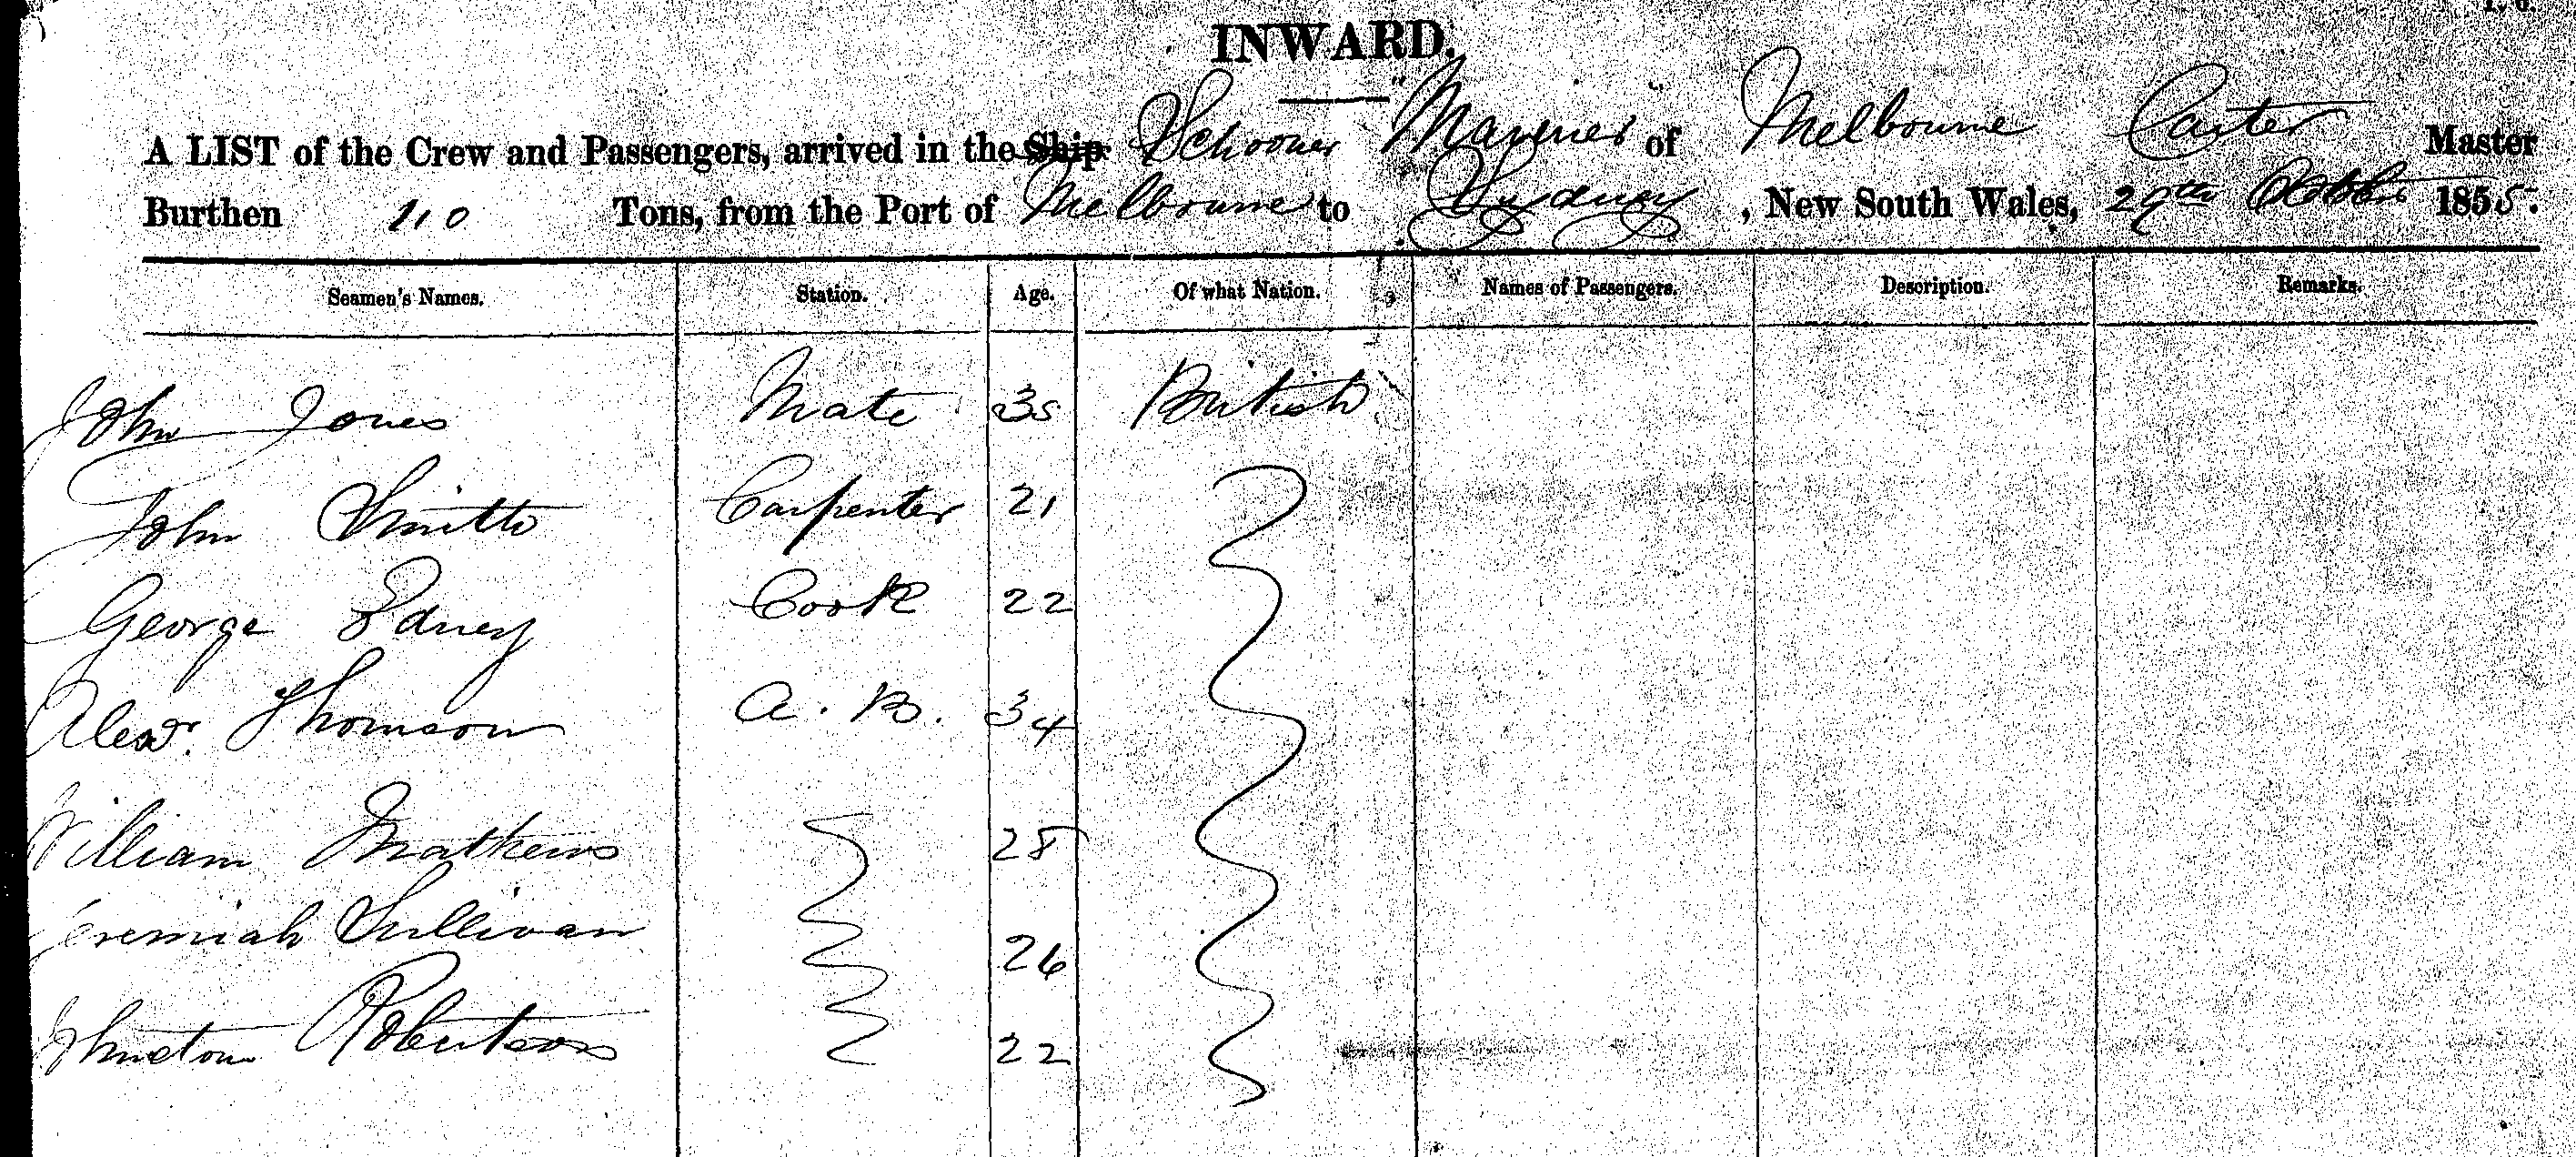 INWARD.
A LIST of the Crew and Passengers, arrived in the Ship Schooner "Mariner of Melbourne Carter Master
Burthen 110 Tons, from the Port of Melbourne to Sydney, New South Wales, 29th October 1855.
Seamen's Names. Station. Age. Of what Nation. Names of Passengers. Description. Remarks.
John Jones Mate 35 British
John Smith Carpenter 21
George Edney Cook 22
Alexr. Thomson A. B. 34
William Mathews 28
Jeremiah Sullivan 26
Johnston Robertson 22